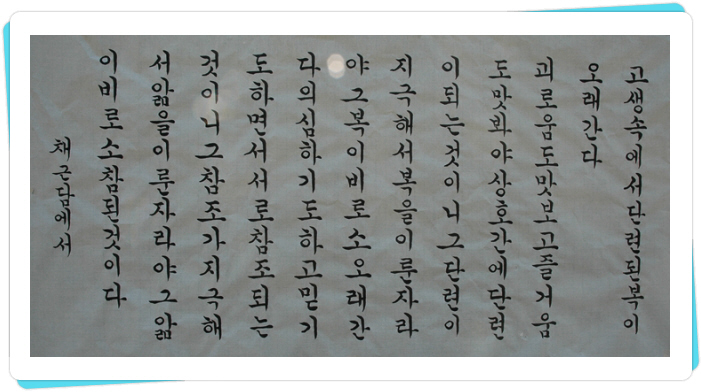 고생속에서단련된복이
오래간다
괴로움도맛보고즐거움
도맛봐야상호간에단련
이되는것이니그단련이
지극해서복을이룬자라
야그복이비로소오래간
다의심하기도하고믿기
도하면서서로참조되는
것이니그참조가지극해
서앎을이룬자라야그앎
이비로소참된것이다
채근담에서